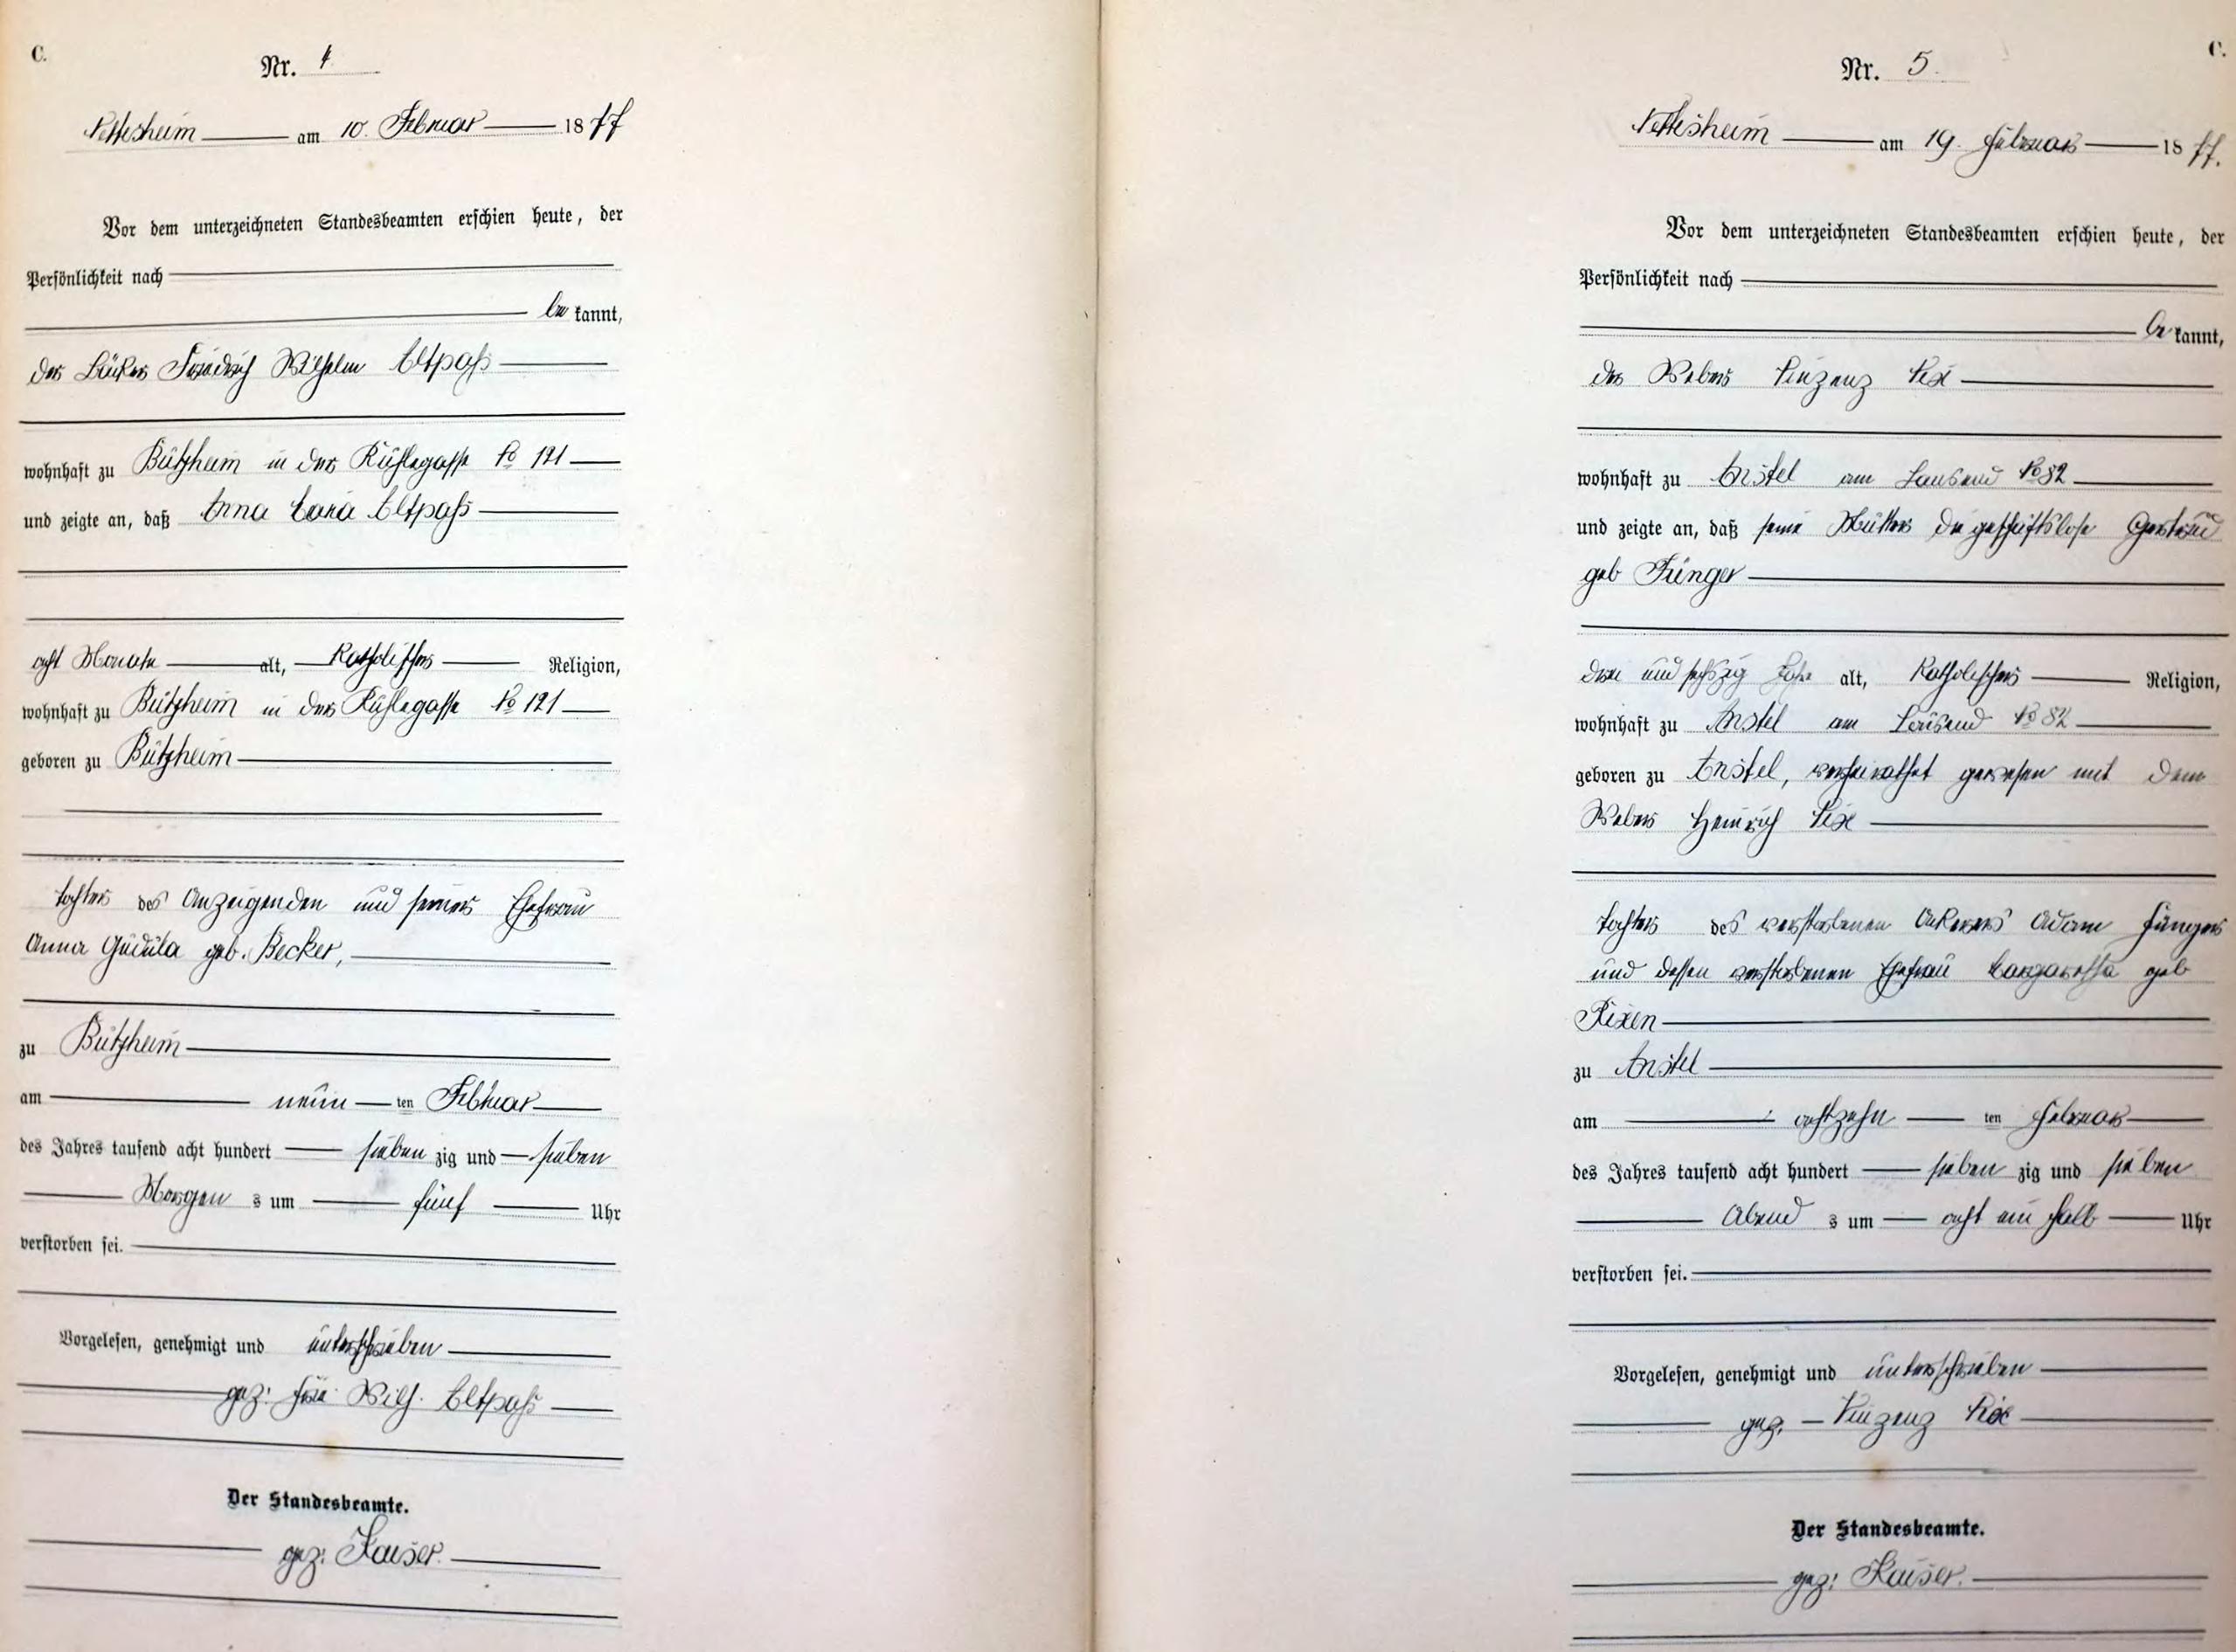 C.
Nr. 4
Nettesheim am 10. Februar 1877
Vor dem unterzeichneten Standesbeamten erschien heute, der
Persönlichkeit nach
be kannt,
der Bäcker Friedrich Wilhelm Eltpaß
wohnhaft zu Bützheim in der Kühlegasse No 121
und zeigte an, daß Anna Maria Eltpaß
acht Monate alt, Katholischer Religion,
wohnhaft zu Bützheim in der Kühlegasse No 121
geboren zu Bützheim
tochter des Anzeigenden und seiner Ehefrau
Anna Gudula geb. Becker,
zu Bützheim
am neun ten Februar
des Jahres tausend acht hundert sieben zig und sieben
Morgen s um fünf Uhr
verstorben sei.
Vorgelesen, genehmigt und unterschrieben
gez: Wilh. Eltpaß
Der Standesbeamte.
gez: Kaiser.
C.
Nr. 5.
Nettesheim am 19. Februar 1877.
Vor dem unterzeichneten Standesbeamten erschien heute, der
Persönlichkeit nach
be kannt,
der Weber Vinzenz Pix
wohnhaft zu Anstel am No 82
und zeigte an, daß seine Mutter die geschäftslose Gertrud
geb Fünger
drei und sechszig Jahre alt, Katholischer Religion,
wohnhaft zu Anstel am No 82
geboren zu Anstel, verheirathet gewesen mit dem
Weber Heinrich Pix
tochter des verstorbenen Ackerers Adam Füngers
und dessen verstorbenen Ehefrau Margaretha geb
Rixen
zu Anstel
am achtzehn ten Februar
des Jahres tausend acht hundert sieben zig und sieben
Abend s um acht ein halb Uhr
verstorben sei.
Vorgelesen, genehmigt und unterschrieben
gez. Vinzenz Pix
Der Standesbeamte.
gez: Kaiser.